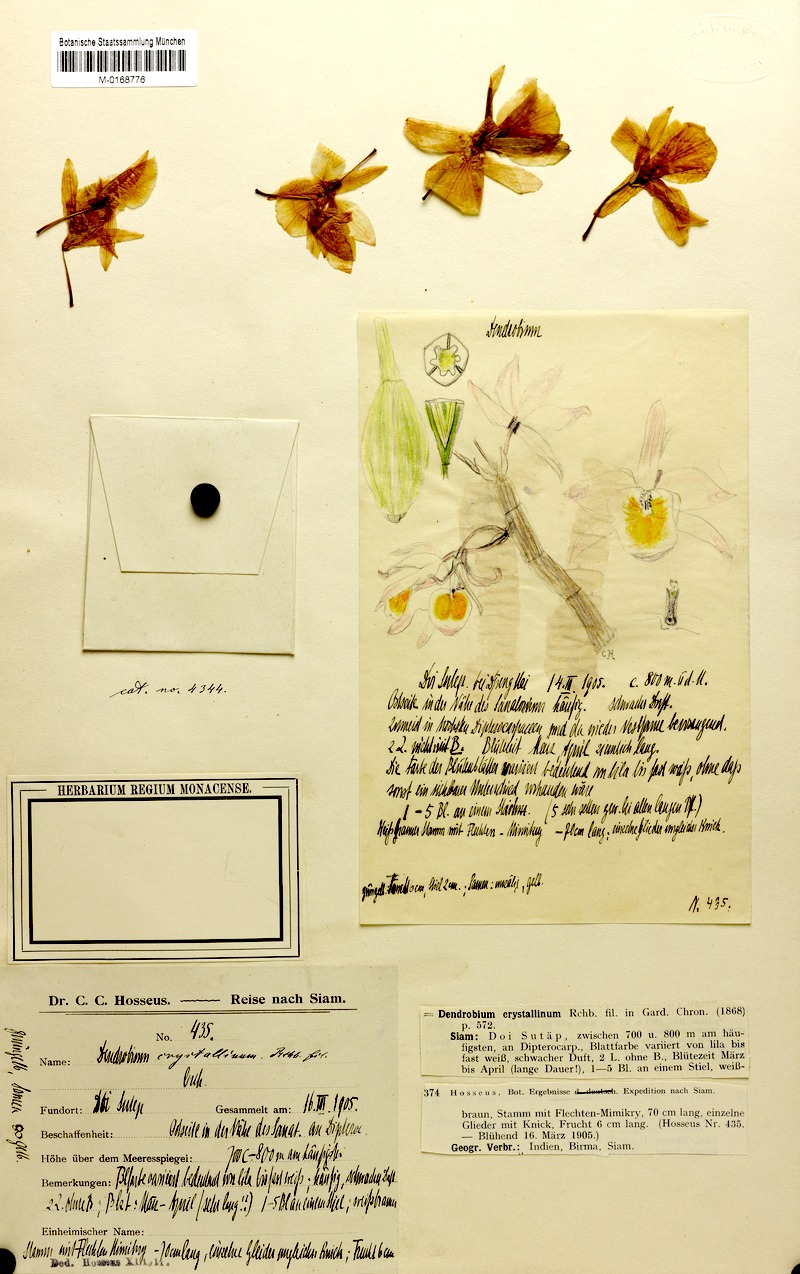 Botanische Staatssammlung München
M-0168776
Dendrobium
Doi Sutep. bei Djieng Mai 14.III.1905. c. 800 m. ü. d. M.
Ostseite in der Nähe des Sanatoriums häufig. schwacher Duft.
2 L. nicht mit B. Blütezeit März April ziemlich lang.
Die Farbe der Blütenblätter variiert bedeutend von lila bis fast weiß, ohne daß
sonst ein sichtbarer Unterschied vorhanden wäre
1-5 Bl. an einem
Weißbrauner Stamm mit Flechten-Mimikry - 70 cm lang; einzelne Glieder ungleicher Knick.
N. 435.
cat. no. 4344.
HERBARIUM REGIUM MONACENSE.
Dr. C. C. Hosseus. —— Reise nach Siam.
No. 435.
Name: Dendrobium crystallinum. Rchb. fil.
Orch.
Fundort: Doi Sutep Gesammelt am: 16.III.1905.
Beschaffenheit: Ostseite in der Nähe des Sanat. an Dipteroc.
Höhe über dem Meeresspiegel: 700-800 m am häufigsten
Bemerkungen: Blfarbe variiert bedeutend von lila bis fast weiß; häufig, schwacher Duft.
2 L. ohne B; Blzt: März-April (sehr lang!!) 1-5 Bl. an einem Stiel; weißbraun
Einheimischer Name:
Stamm mit Flechten Mimikry - 70 cm lang, einzelne Glieder ungleicher Knick; Frucht 6 cm
Ded. Hosseus
grüngelb, Samen gelb.
= Dendrobium crystallinum Rchb. fil. in Gard. Chron. (1868)
p. 572.
Siam: Doi Sutäp, zwischen 700 u. 800 m am häu-
figsten, an Dipterocarp., Blattfarbe variiert von lila bis
fast weiß, schwacher Duft, 2 L. ohne B., Blütezeit März
bis April (lange Dauer!), 1—5 Bl. an einem Stiel, weiß-
374 Hosseus, Bot. Ergebnisse d. deutsch. Expedition nach Siam.
braun, Stamm mit Flechten-Mimikry, 70 cm lang, einzelne
Glieder mit Knick, Frucht 6 cm lang. (Hosseus Nr. 435.
— Blühend 16. März 1905.)
Geogr. Verbr.: Indien, Birma, Siam.